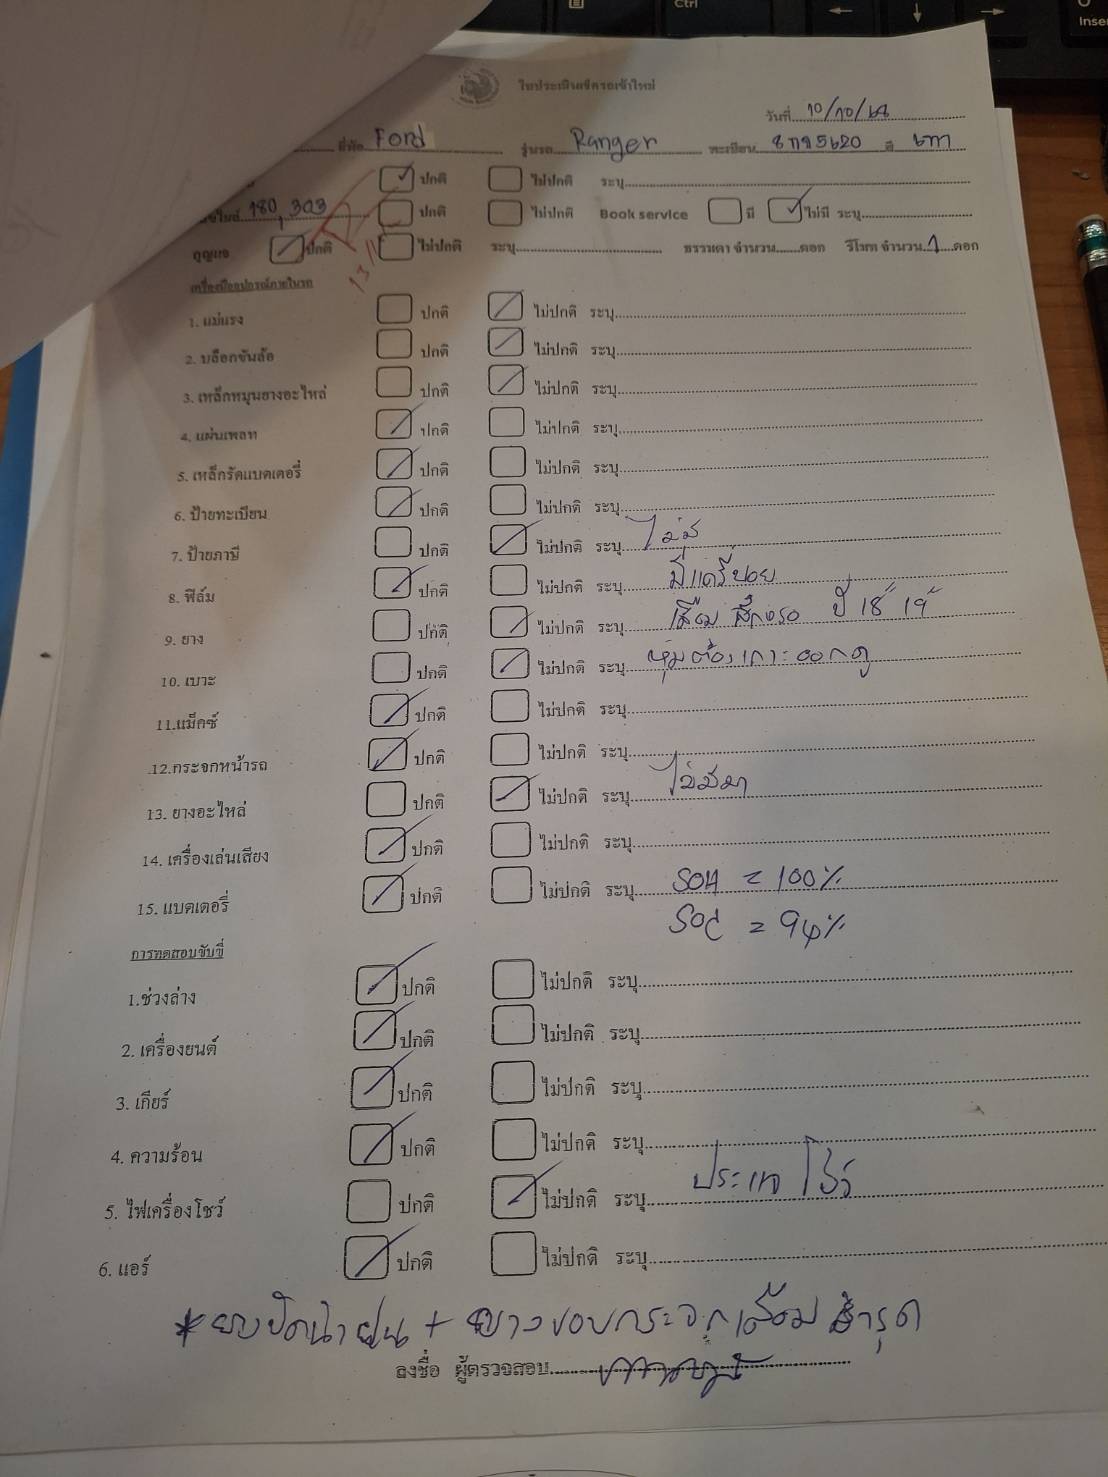 ใบประเมินเช็ครถเข้าใหม่
วันที่ 10/10/68
ยี่ห้อ Ford รุ่นรถ Ranger ทะเบียน สี เทา
ปกติ ไม่ปกติ ระบุ
เลขไมล์ 180,303 ปกติ ไม่ปกติ Book service มี ไม่มี ระบุ
กุญแจ ปกติ ไม่ปกติ ระบุ ธรรมดา จำนวน ดอก รีโมท จำนวน 1 ดอก
เครื่องมืออุปกรณ์ภายในรถ
1. แม่แรง ปกติ ไม่ปกติ ระบุ
2. บล็อกขันล้อ ปกติ ไม่ปกติ ระบุ
3. เหล็กหมุนยางอะไหล่ ปกติ ไม่ปกติ ระบุ
4. แผ่นเพลท ปกติ ไม่ปกติ ระบุ
5. เหล็กรัดแบตเตอรี่ ปกติ ไม่ปกติ ระบุ
6. ป้ายทะเบียน ปกติ ไม่ปกติ ระบุ
7. ป้ายภาษี ปกติ ไม่ปกติ ระบุ ไม่มี
8. ฟิล์ม ปกติ ไม่ปกติ ระบุ
9. ยาง ปกติ ไม่ปกติ ระบุ เสื่อม สึกหรอ ปี 18 19
10. เบาะ ปกติ ไม่ปกติ ระบุ หุ้มต้องเกาะออกดู
11.แม็คซ์ ปกติ ไม่ปกติ ระบุ
12.กระจกหน้ารถ ปกติ ไม่ปกติ ระบุ
13. ยางอะไหล่ ปกติ ไม่ปกติ ระบุ ไม่มีมา
14. เครื่องเล่นเสียง ปกติ ไม่ปกติ ระบุ
15. แบตเตอรี่ ปกติ ไม่ปกติ ระบุ SOH = 100%
SOC = 94%
การทดสอบขับขี่
1.ช่วงล่าง ปกติ ไม่ปกติ ระบุ
2. เครื่องยนต์ ปกติ ไม่ปกติ ระบุ
3. เกียร์ ปกติ ไม่ปกติ ระบุ
4. ความร้อน ปกติ ไม่ปกติ ระบุ
5. ไฟเครื่องโชว์ ปกติ ไม่ปกติ ระบุ ประแจ โชว์
6. แอร์ ปกติ ไม่ปกติ ระบุ
*ยางปัดน้ำฝน + ยางขอบกระจกเสื่อม ชำรุด
ลงชื่อ ผู้ตรวจสอบ